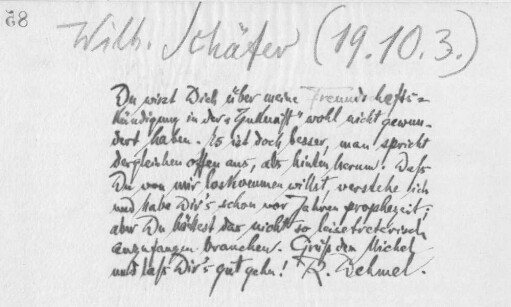 58
Wilh. Schäfer (19.10.3.)
Du wirst Dich über meine Freundschafts=
kündigung in der „Zukunft" wohl nicht gewun-
dert haben. Es ist doch besser, man spricht
dergleichen offen aus, als hinten herum. Daß
Du von mir loskommen willst, verstehe ich
und habe Dir's schon vor Jahren prophezeit;
aber Du hättest das nicht so leisetreterisch
anzufangen brauchen. Grüß den Michel
und laß Dir's gut gehn! R. Dehmel.